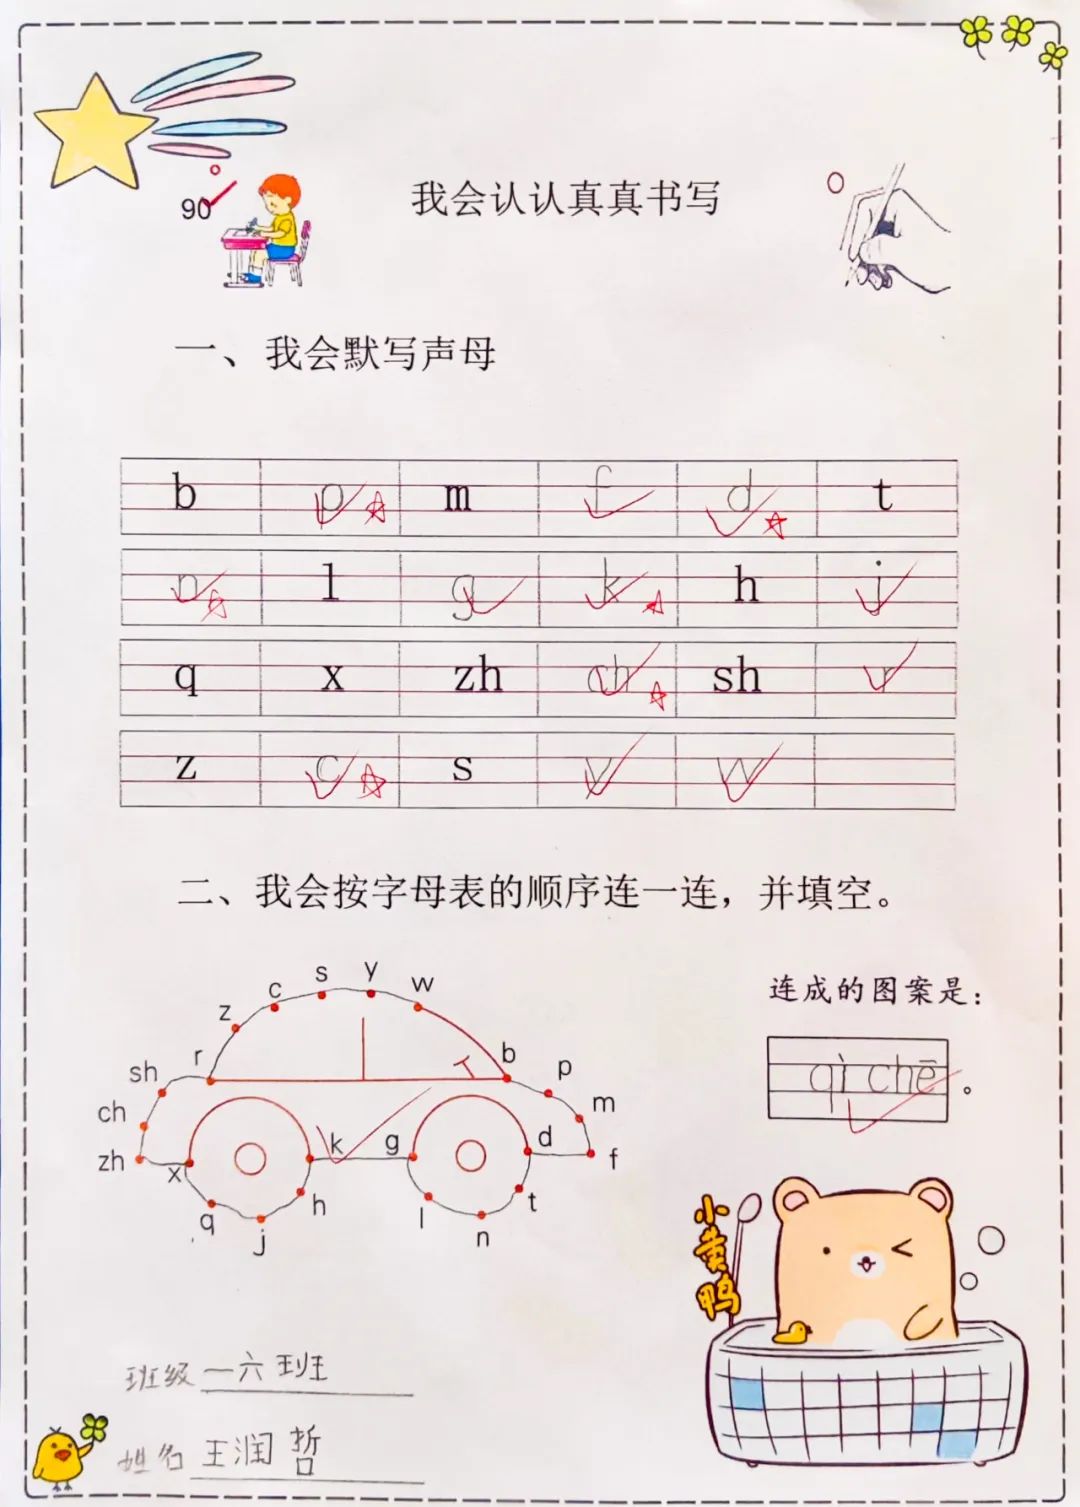 90
我会认认真真书写
一、我会默写声母
b p m f d t
n l g k h j
q x zh ch sh r
z c s y w
二、我会按字母表的顺序连一连，并填空。
连成的图案是：
qì chē 。
s y w
c
z
r b p
sh
m
ch
k g d
zh x f
h t
q l
j n
小黄鸭
班级 一六班
姓名 王润哲